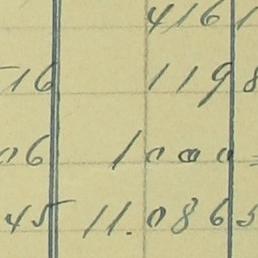 4161
16 1198
06 1000
45 11.0865